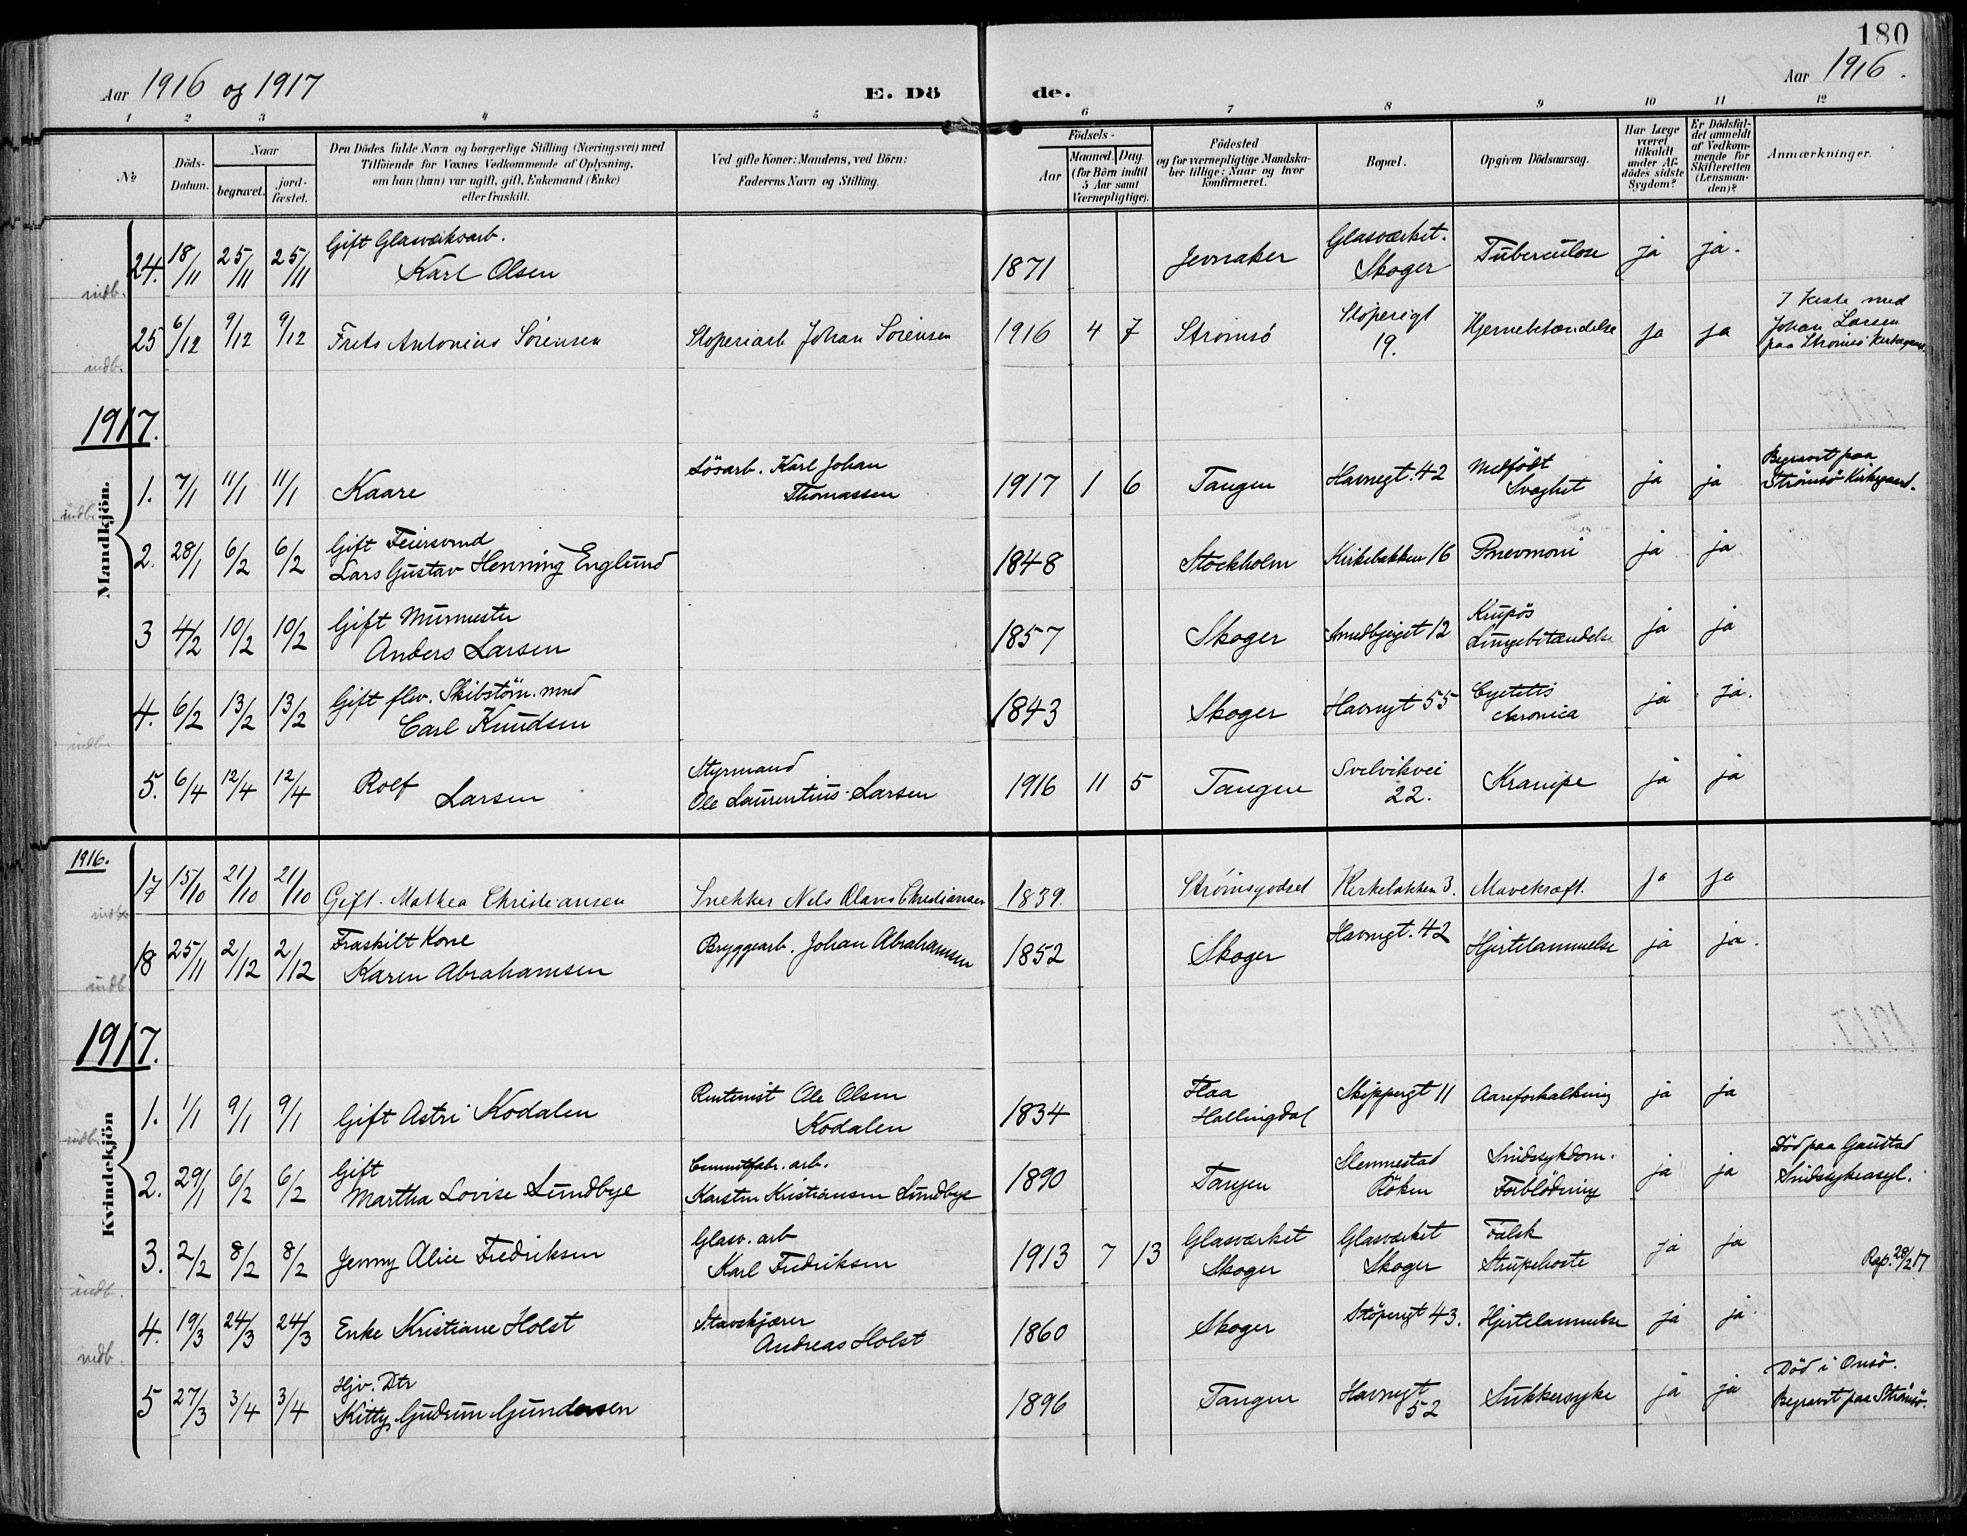 180
Aar 1916 og 1917
E. Dö de.
Aar 1916.
1 2 3 4 5 6 7 8 9 10 11 12
No
Döds-Datum.
Naar
begravet.
jord-fæstet.
Den Dödes fulde Navn og borgerlige Stilling (Næringsvei) med
Tilföiende for Voxnes Vedkommende af Oplysning,
om han (hun) var ugift, gift, Enkemand (Enke)
eller fraskilt.
Ved gifte Koner: Mandens, ved Börn:
Faderens Navn og Stilling.
Födsels-
Aar
Maaned. Dag.
(for Börn indtil
5 Aar samt
Værnepligtige).
Födested
og for værnepligtige Mandska-
ber tillige: Naar og hvor
konfirmeret.
Bopæl.
Opgiven Dödsaarsag.
Har Læge
været
tilkaldt
under Af-
dödes sidste
Sygdom?
Er Dödsfal-
det anmeldt
af Vedkom-
mende for
Skifteretten
(Lensman-
den)?
Anmærkninger.
Mandkjön.
indb. 24. 18/11 25/11 25/11 Gift Glasværksarb.
Karl Olsen 1871 Jevnaker Glasværket. Skoger Tuberculose ja ja.
indb. 25 6/12 9/12 9/12 Frets Antonius Sörensen Stoperiarb Johan Sörensen 1916 4 7 Strömsö Stöperigt 19. Hjernebetændelse ja ja I Kiste med
Johan Larsen
paa Strömsö Kirkegaard.
1917.
indb. 1. 7/1 11/1 11/1 Kaare Lösarb. Karl Johan
Thomassen 1917 1 6 Tangen Havnegt. 42 Medfödt
Svaghet ja ja Begravet paa
Strömsö Kirkegaard.
2. 28/1 6/2 6/2 Gift Feiersvend
Lars Gustav Henning Englund 1848 Stockholm Kirkebakken 16 Pnevmoni ja ja
3 4/2 10/2 10/2 Gift Murmester
Anders Larsen 1857 Skoger 12 Krupös
Lungebetændelse ja ja
indb. 4. 6/2 13/2 13/2 Gift flv. Skibstöm. mnd
Carl Knudsen 1843 Skoger Havnegt 55 Cystitis
chronica ja ja.
5. 6/4 12/4 12/4 Rolf
Larsen Styrmand
Ole Laurentius Larsen 1916 11 5 Tangen Svelvikvei
22. Krampe ja ja
1916.
indb. 17 15/10 21/10 21/10 Gift. Mathea Christiansen Snekker Nels Olaves Christiansen 1839. Strömsgodset Kirkebakken 3. Mavekræft. ja ja
indb 18 25/11 2/12 2/12 Fraskilt Kone
Karen Abrahamsen Bryggearb. Johan Abrahamsen 1852 Skoger Havnegt. 42 Hjertelammelse ja ja.
1917.
Kvindekjön
indb. 1. 1/1 9/1 9/1 Gift Astri Kodalen Rentenist Ole Olsen
Kodalen 1834 Flaa
Hallingdal Skippergt 11 Aareforkalkning ja ja
2. 29/1 6/2 6/2 Gift
Martha Lovise Lundbye Cementfabr. arb.
Karsten Kristiansen Lundbye 1890 Tangen Slemmestad
Röken Sindssykdom.
Forblödning ja ja Död paa Gaustad
Sindssykeasyl.
indb. 3. 2/2 8/2 8/2 Jenny Alice Fredriksen Glasv. arb
Karl Fredriksen 1913 7 13 Glasværket
Skoger Glasværket
Skoger Falsk
Strupehoste ja ja Rap. 28/2 17
indb. 4. 19/3 24/3 24/3 Enke Kristiane Holst Stavskjærer
Andreas Holst 1860 Skoger Stöperigt 43. Hjertelammelse ja ja
5 27/3 3/4 3/4 Hjv. Dtr
Kitty Gudrun Gundersen 1896 Tangen Havnegt
52 Sukkersyke ja ja Död i Onsö.
Begravet paa Strömsö.